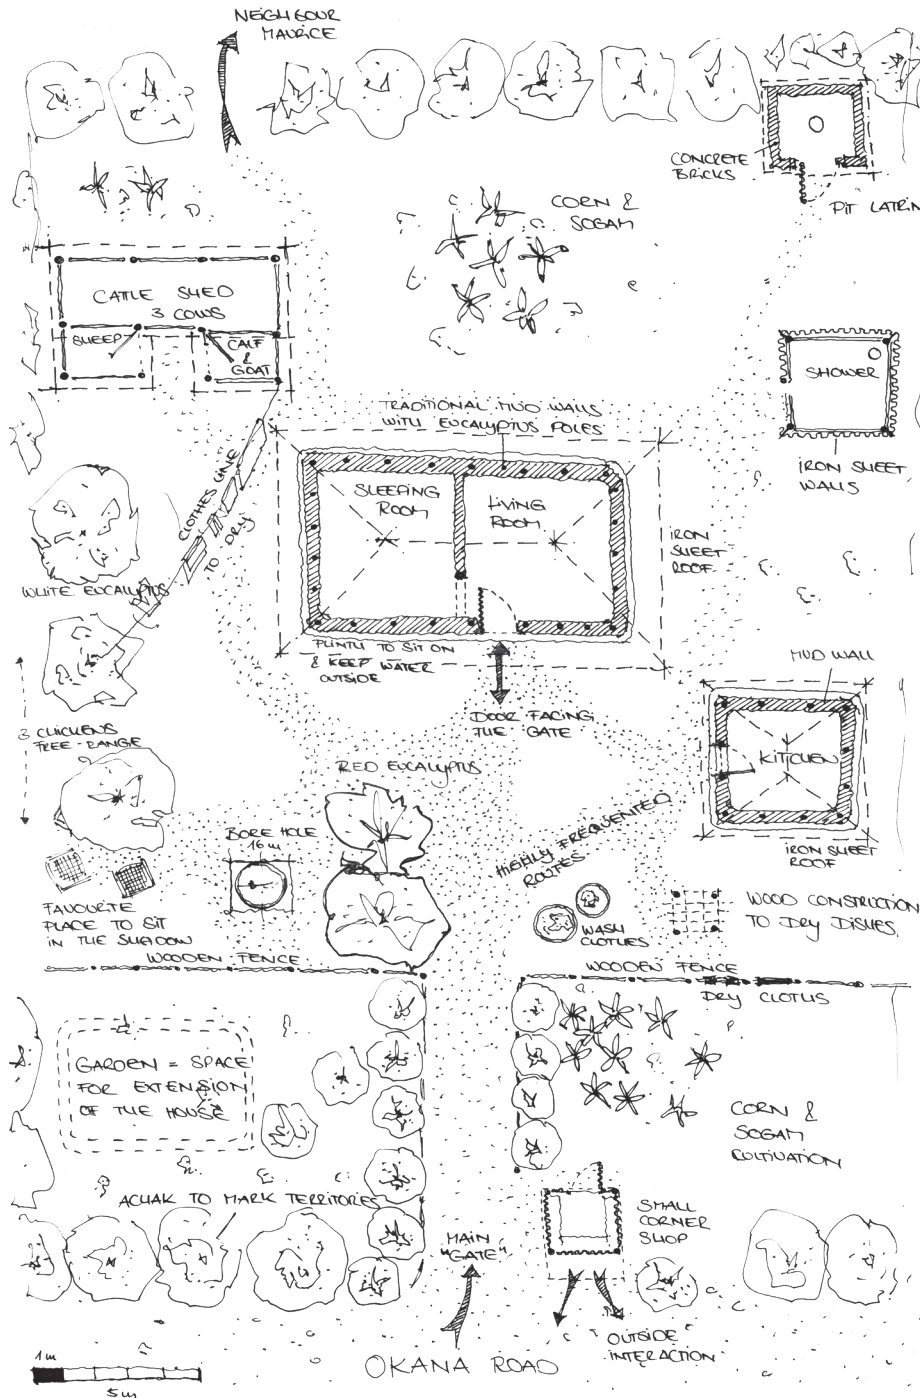 NEIGHBOUR
MAURICE
CONCRETE
BRICKS
PIT LATRIN
CORN &
SOGAM
CATTLE SHED
3 COWS
SHEEP
CALF
&
GOAT
SHOWER
IRON SHEET
WALLS
TRADITIONAL MUD WALLS
WITH EUCALYPTUS POLES
CLOTHES LINE
TO DRY
SLEEPING
ROOM
LIVING
ROOM
IRON
SHEET
ROOF
WHITE EUCALYPTUS
PLINTH TO SIT ON
& KEEP WATER
OUTSIDE
MUD WALL
DOOR FACING
THE GATE
3 CHICKENS
FREE-RANGE
KITCHEN
RED EUCALYPTUS
BORE HOLE
16 m
HIGHLY FREQUENTED
ROUTES
IRON SHEET
ROOF
FAVOURITE
PLACE TO SIT
IN THE SHADOW
WASH
CLOTHES
WOOD CONSTRUCTION
TO DRY DISHES
WOODEN FENCE
WOODEN FENCE
DRY CLOTHS
GARDEN = SPACE
FOR EXTENSION
OF THE HOUSE
CORN &
SOGAM
CULTIVATION
ACHAK TO MARK TERRITORIES
MAIN
"GATE"
SMALL
CORNER
SHOP
"OUTSIDE"
INTERACTION
OKANA ROAD
1m
5m